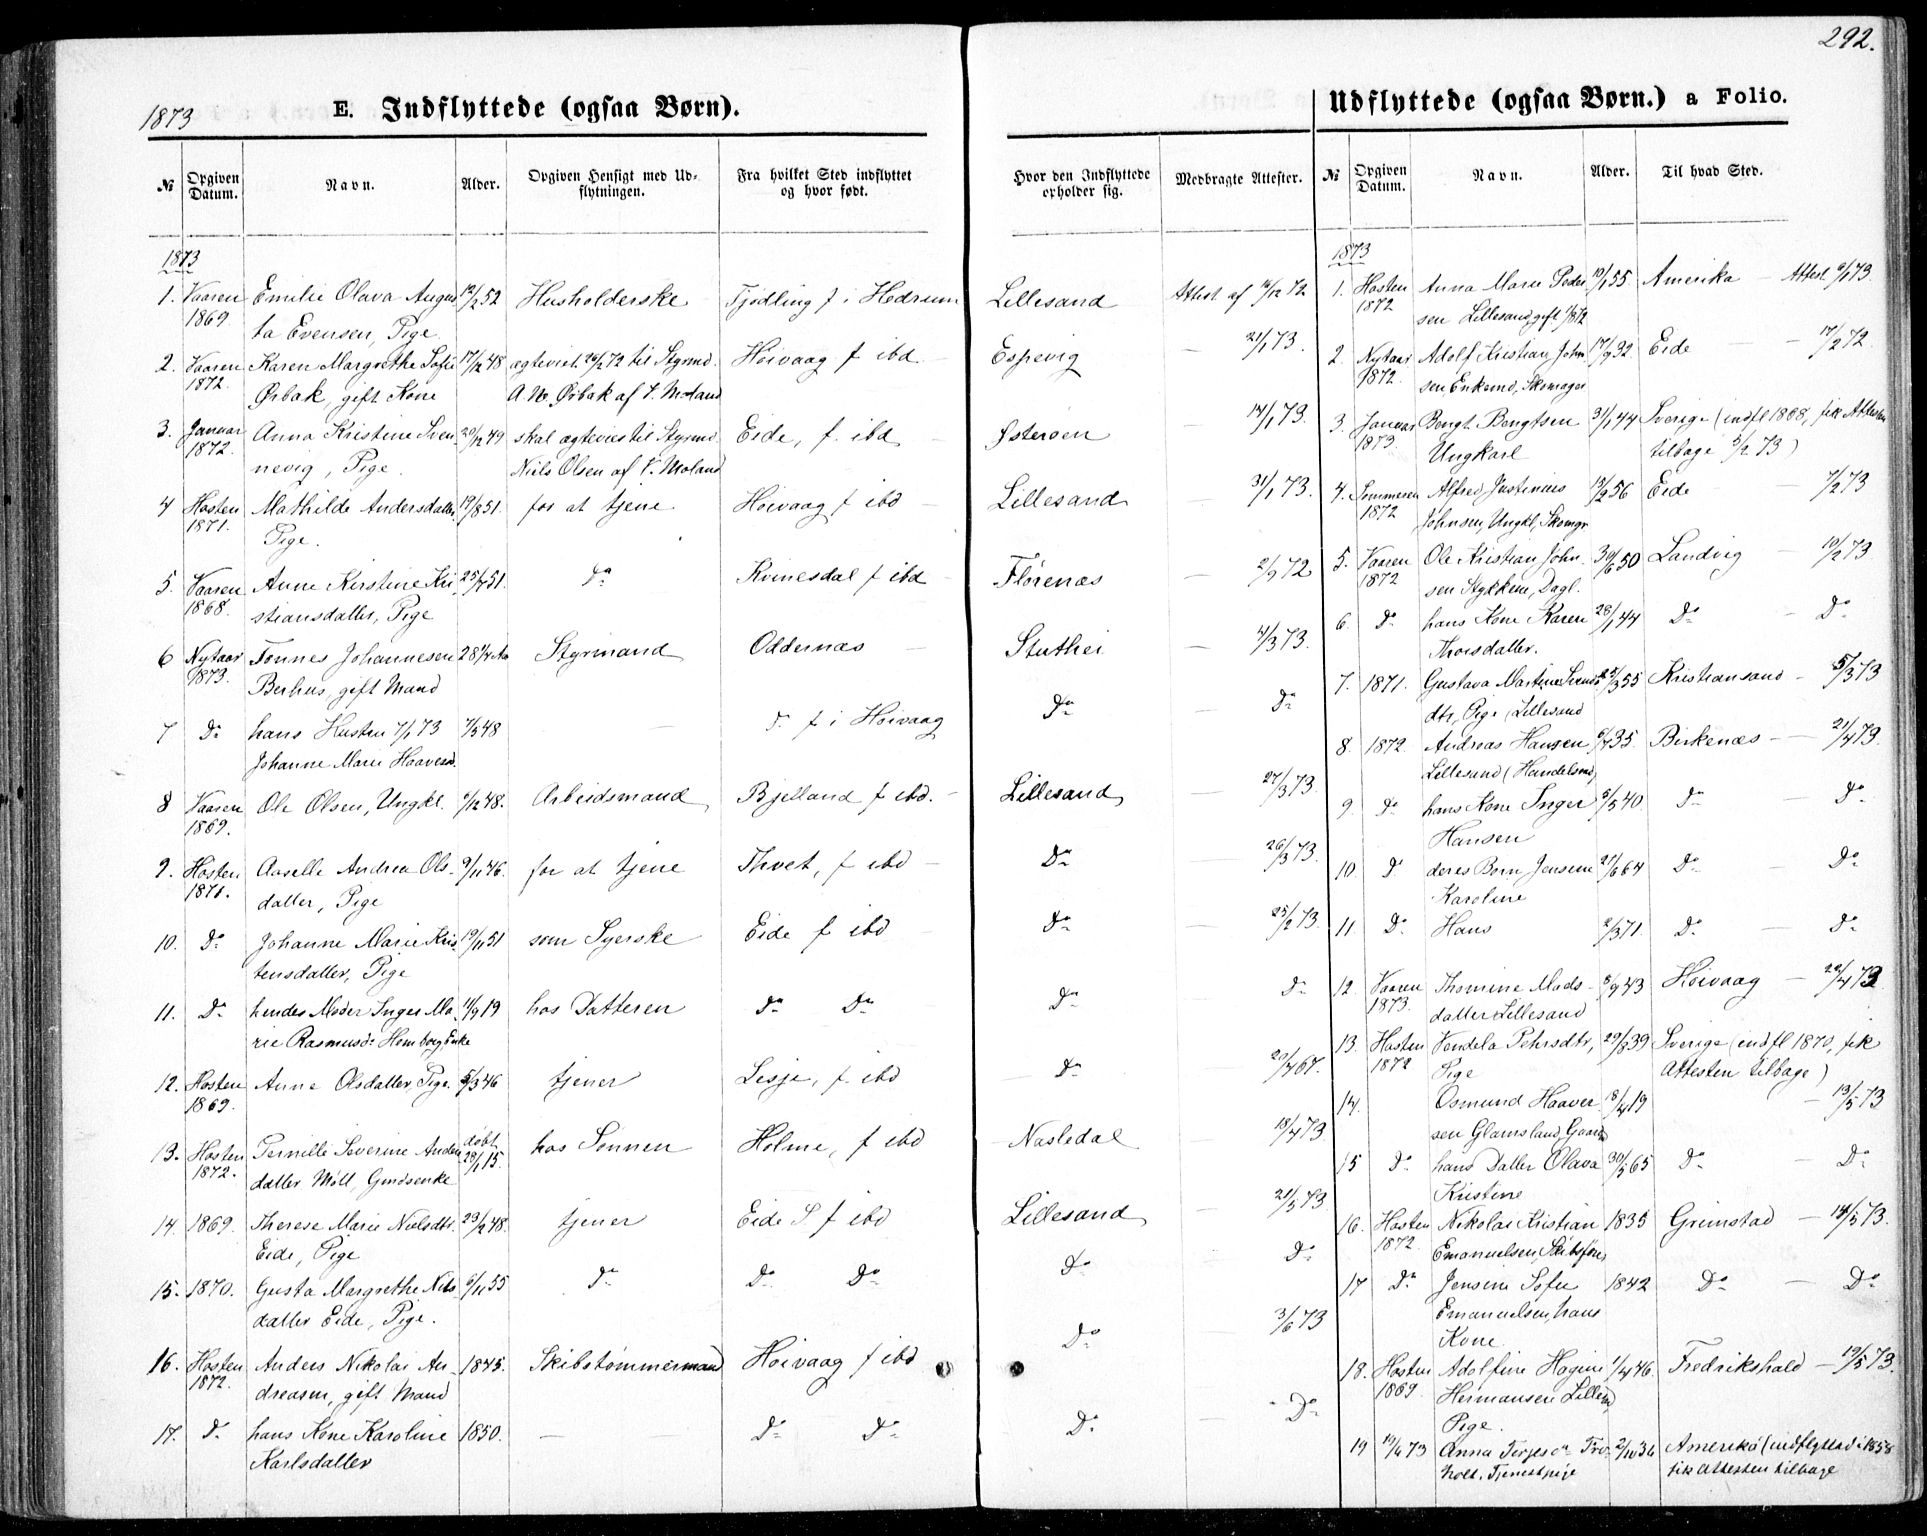 292.
1873
E. Indflyttede (ogsaa Børn).
№
Opgiven Datum.
Navn.
Alder.
Opgiven Hensigt med Ud-
flytningen.
Fra hvilket Sted indflyttet
og hvor født.
Hvor den Indflyttede
opholder sig.
Medbragte Attester.
1873
1. Vaaren Emilie Olava Augus 12/2 52 Husholderske Tjødling f i Hedrum Lillesand Attest af 14/12 72
1869. ta Evensen, Pige
2. Vaaren Karen Margrethe Sofie 17/12 48 ægteviet 26/2 72 til Styrmd. Høivaag f ibd Espevig 21/1 73.
1872. Ørbæk, gift Kone A. M. Ørbæk af V. Moland
3. Januar Anna Kristine Sven 20/12 49 skal ægtevies til Styrmd. Eide, f. ibd Østerøen 14/1 73.
1872. nevig, Pige. Niels Olsen af V. Moland
4 Høsten Mathilde Andersdatter 19/8 51. for at tjene Høivaag f ibd Lillesand 31/1 73.
1871. Pige.
5. Vaaren Anne Kirstine Kri 25/7 51. Do Kvinesdal f ibd Flørenæs 2/9 72
1868. stiansdatter, Pige
6 Nytaar Tønnes Johannesen 28 1/4 Aa Styrmand Oddernæs Stuthei 4/3 73.
1873. Berhus, gift Mand
7 Do hans Hustru 7/1 73 7/5 48 Do f i Høivaag Do Do
Johanne Marie Haaversd.
8 Vaaren Ole Olsen, Ungkl. 6/12 48. Arbeidsmand Bjelland f ibd. Lillesand 27/3 73.
1869.
9. Høsten Aaselle Andrea Ols- 9/11 46. for at tjene Thvet, f ibd Do 26/3 73.
1871. datter, Pige
10. Do Johanne Marie Kris 19/11 51 som Syerske Eide f ibd Do 25/2 73.
tensdatter, Pige
11. Do hendes Moder Inger Ma 11/9 19 hos Datteren Do Do Do Do
rie Rasmusdr Homborg, Enke
12. Høsten Anne Olsdatter, Pige. 5/3 46 tjener Lesje, f. ibd Do 20/4 67.
1869.
13. Høsten Pernille Severine Anders døbt 28/1 15. hos Sønnen Holme, f ibd Nasledal 18/4 73
1872. datter Møll, Gmdsenke
14. 1869. Therese Marie Nielsdtr. 23/2 48. tjener Eide S. f ibd Lillesand 21/5 73.
Eide, Pige
15. 1870. Gusta Margrethe Nils 6/11 55 Do Do Do Do Do
datter Eide, Pige.
16. Høsten Anders Nikolai An 1845. Skibstømmermand Høivaag f ibd Do 3/6 73
1872. dreasen, gift Mand
17. Do hans Kone Karoline 1850. Do Do Do Do
Karlsdatter
Udflyttede (ogsaa Børn.) a Folio.
№
Opgiven Datum.
Navn.
Alder.
Til hvad Sted.
1873
1. Høsten Anna Marie Peder 10/1 55 Amerika Attest 9/1 73
1872 sen Lillesand, gift 1872
2. Nytaar Adolf Kristian John 17/9 32 Eide 17/2 72
1872. sen, Enkemd, Skomager
3. Januar Bengt Bengtsen 31/1 44 Sverige (indfl 1868, fik Attesten
1873. Ungkarl tilbage 5/2 73)
4. Sommeren Alfred Justinius 13/2 56 Eide 7/2 73
1872 Johnsen, Ungkl, Skomgr
5. Vaaren Ole Kristian John 30/6 50 Landvig 10/2 73
1872 sen Stykkene, Dagl.
6. Do hans Kone Karen 28/1 44 Do Do
Thorsdatter.
7. 1871. Gustava Martine Svends 25/3 55 Kristiansand 5/3 73
dtr, Pige, Lillesand
8. 1872. Andreas Hansen 6/7 35. Birkenæs 21/4 73.
Lillesand (Handelsmd)
9. Do hans Kone Inger 5/5 40. Do Do
Hansen
10 Do deres Børn Jensine 27/6 64 Do Do
Karoline
11 Do Hans 2/3 71. Do Do
12. Vaaren Thomine Mads- 8/9 43 Høivaag 22/4 73
1873. datter Lillesand
13. Høsten Vendela Pehrsdtr, 29/8 39 Sverige (indfl 1870, fik
1872 Pige Attesten tilbage)
14. Osmund Haaver 18/4 19 13/5 73
sen Glamsland, Gaardm
15 Do hans Datter Olava 30/5 65 Do Do
Kristine
16. Høsten Nikolai Kristian 1835 Grimstad 14/5 73.
1872 Emanuelsen, Skibsfører
17 Do Jensine Sofie 1842 Do Do
Emanuelsen, hans
Kone
18. Høsten Adolfine Hagine 1/4 46. Fredrikshald 19/5 73.
1869 Hermansen Lillesd,
Pige.
19 19/4 73 Anna Terjesdr Tro- 2/10 36 Amerika (indflyttad i 1858
holt, Tjenestpige fik Attesten tilbage